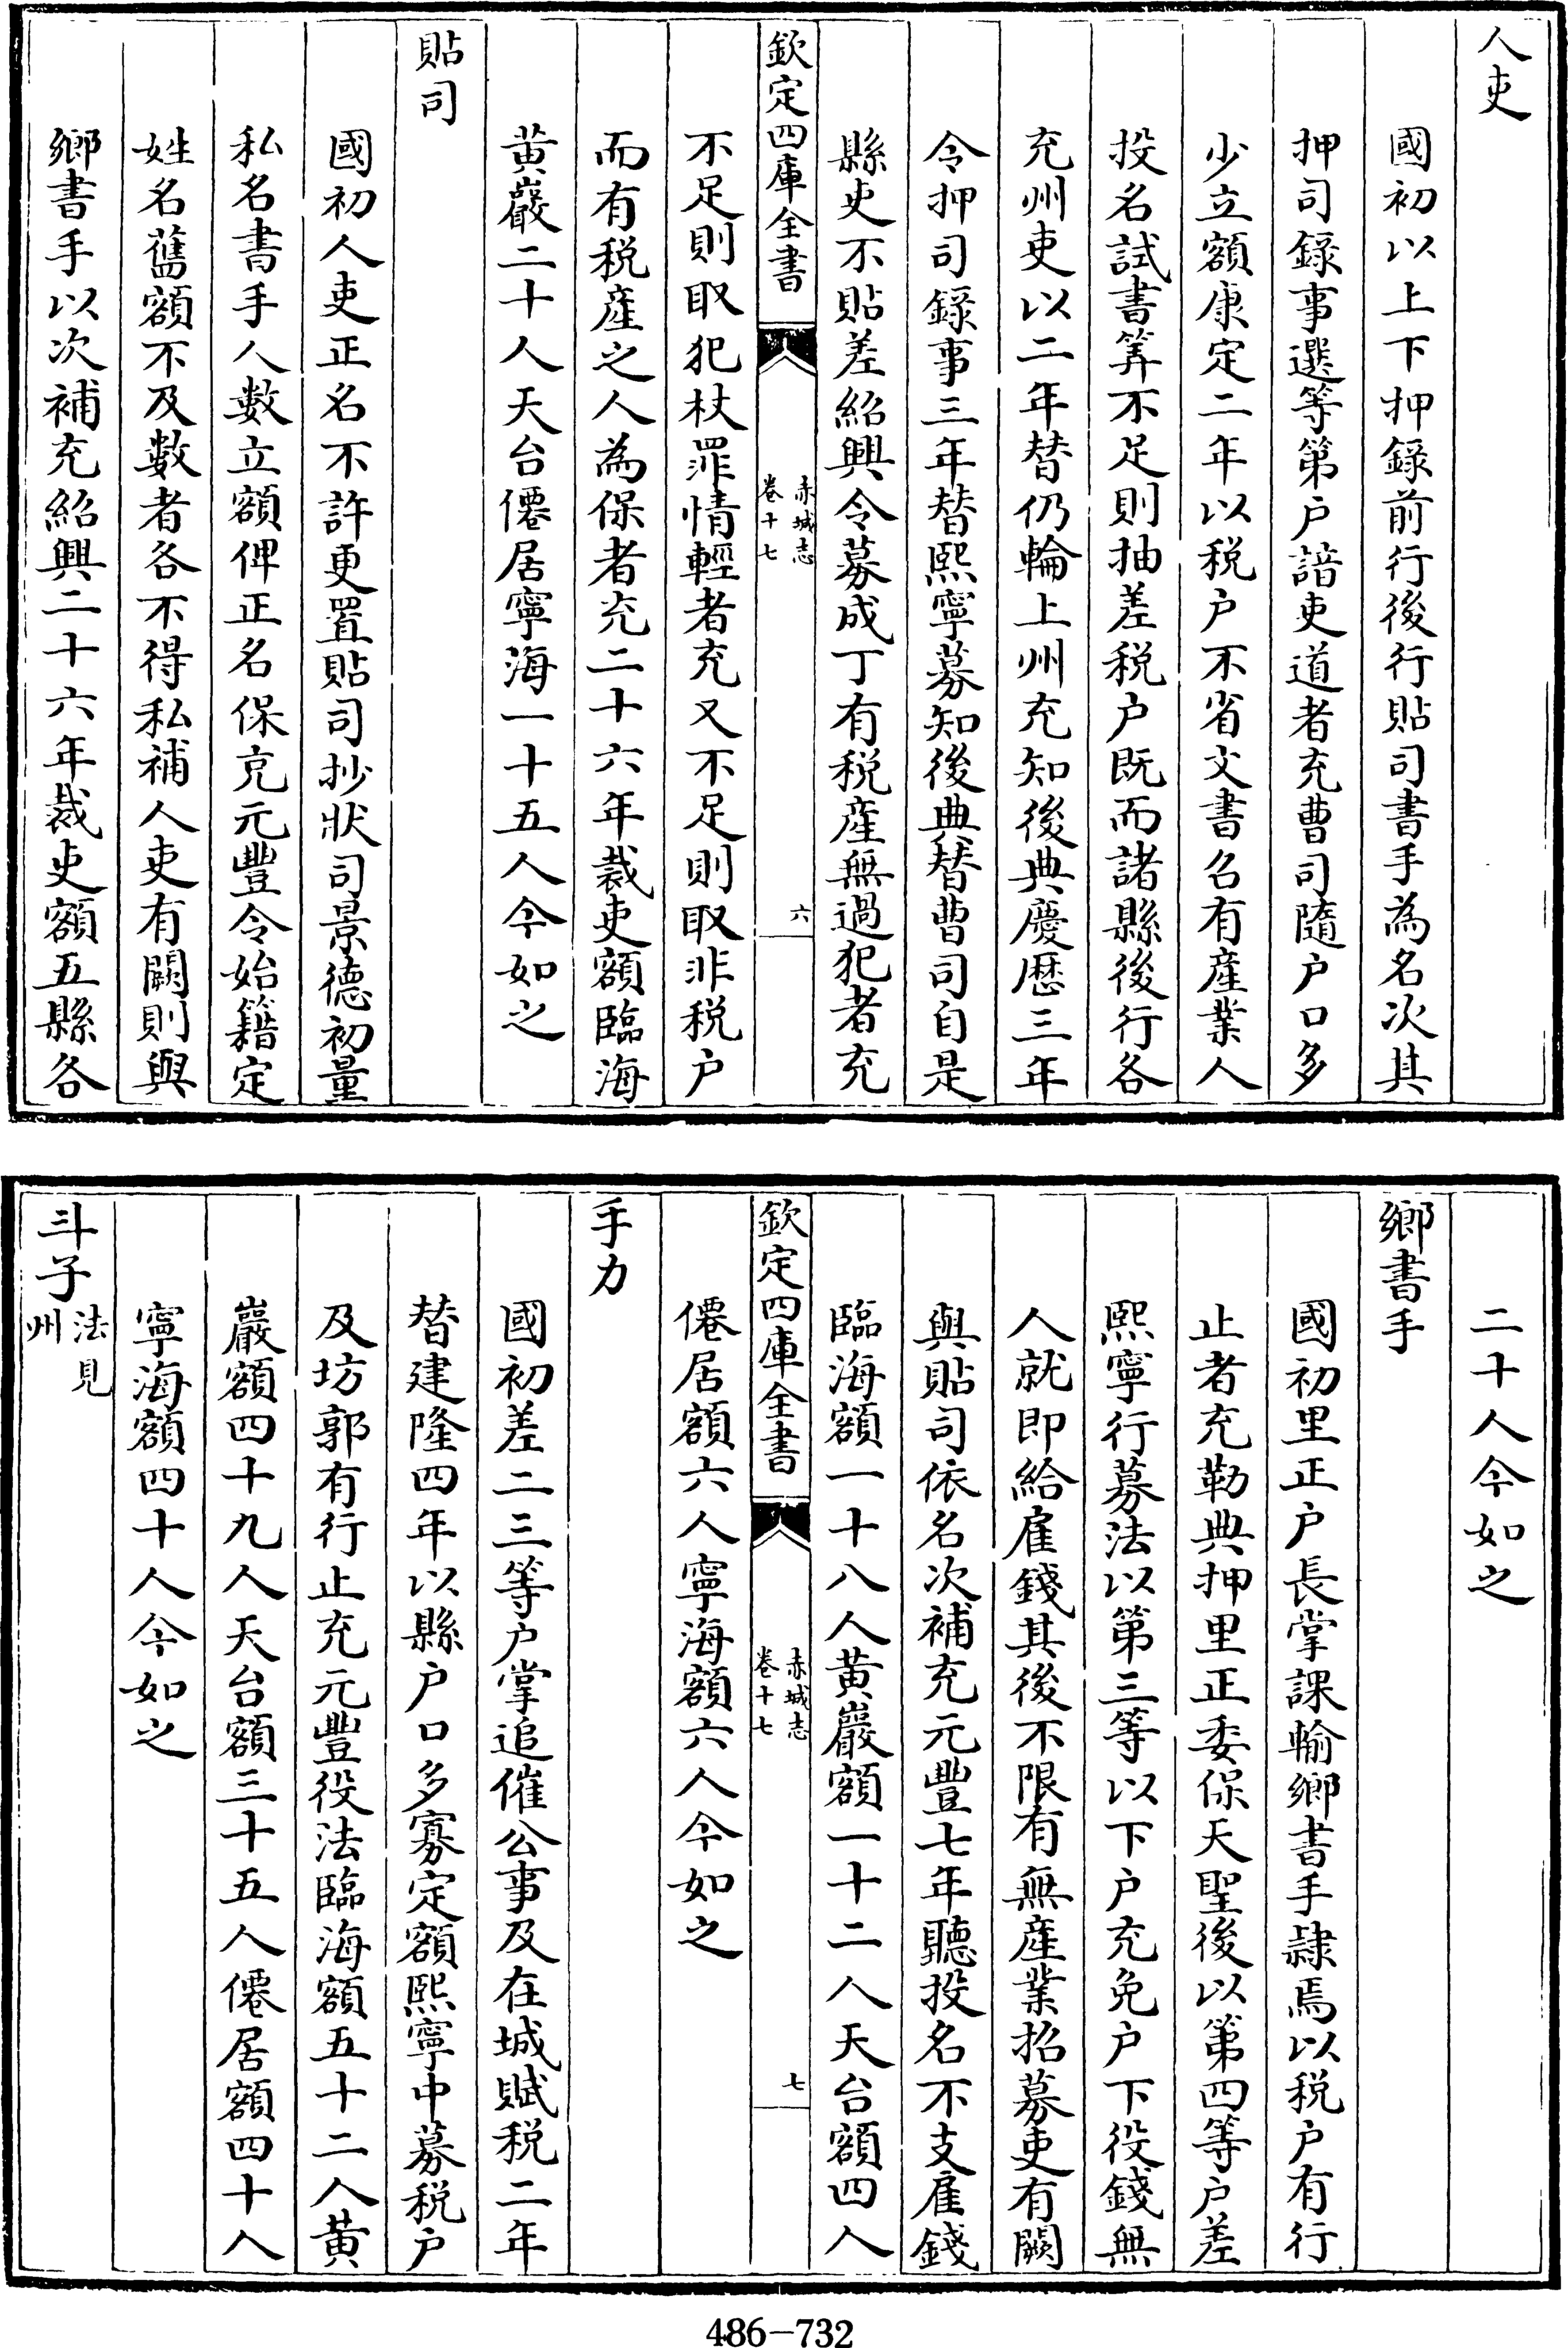 人吏
國初以上下押錄前行後行貼司書手為名次其
押司錄事選等第户諳吏道者充曹司隨户口多
少立額康定二年以税户不省文書名有産業人
投名試書筭不足則抽差税户既而諸縣後行各
充州吏以二年替仍輪上州充知後典慶厯三年
令押司錄事三年替熙寧募知後典替曹司自是
縣吏不貼差紹興令募成丁有税産無過犯者充
欽定四庫全書
赤城志
卷十七
六
不足則取犯杖罪情輕者充又不足則取非税户
而有税産之人為保者充二十六年裁吏額臨海
黄巖二十人天台僊居寧海一十五人今如之
貼司
國初人吏正名不許更置貼司抄狀司景德初量
私名書手人數立額俾正名保充元豐令始籍定
姓名舊額不及數者各不得私補人吏有闕則與
鄉書手以次補充紹興二十六年裁吏額五縣各
二十人今如之
鄉書手
國初里正户長掌課輸鄉書手隸焉以税户有行
止者充勒典押里正委保天聖後以第四等户差
熙寧行募法以第三等以下户充免户下役錢無
人就即給雇錢其後不限有無産業招募吏有闕
與貼司依名次補充元豐七年聽投名不支雇錢
臨海額一十八人黄巖額一十二人天台額四人
欽定四庫全書
赤城志
卷十七
七
僊居額六人寧海額六人今如之
手力
國初差二三等户掌追催公事及在城賦税二年
替建隆四年以縣户口多寡定額熙寧中募税户
及坊郭有行止充元豐役法臨海額五十二人黄
巖額四十九人天台額三十五人僊居額四十人
寧海額四十人今如之
斗子法見州
486-732